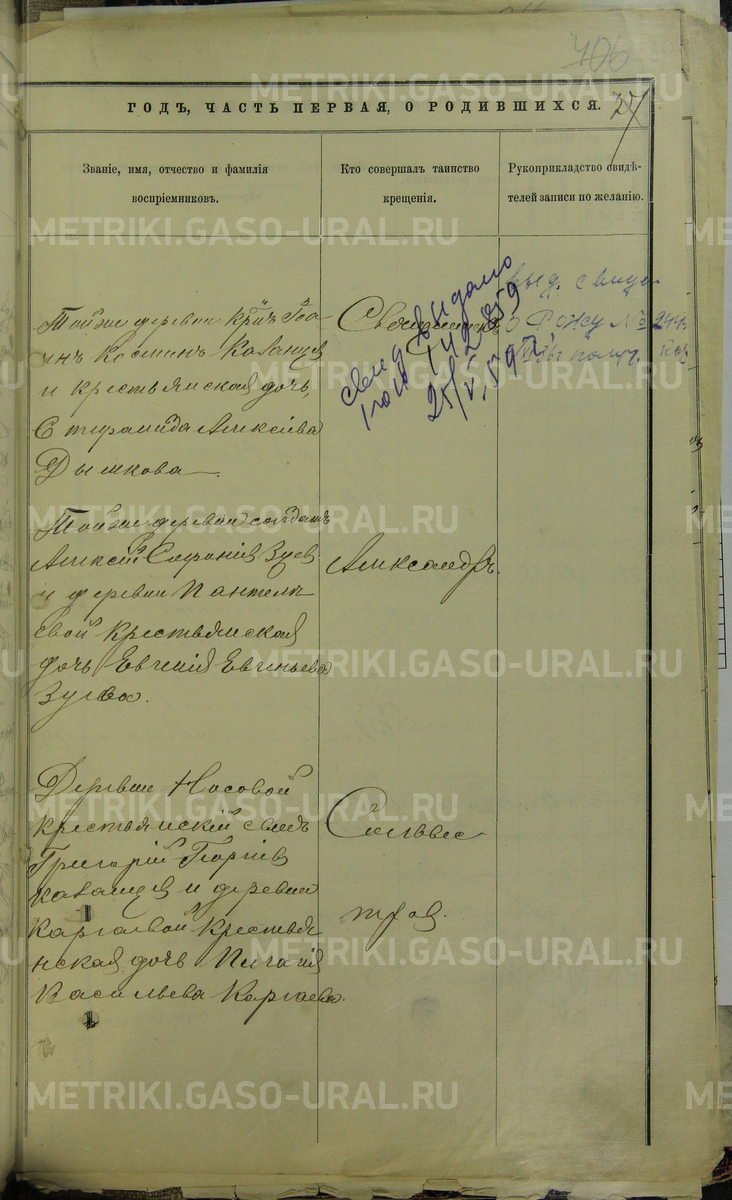 406
ГОДЪ, ЧАСТЬ ПЕРВАЯ, О РОДИВШИХСЯ.
37
Званіе, имя, отчество и фамилія
воспріемниковъ.
Кто совершалъ таинство
крещенія.
Рукоприкладство свидѣ-
телей записи по желанію.
Той же деревни
Косминъ Казанцев
и крестьянская дочь
Алексѣева
Дымкова
Священникъ
Свид выдано
25/V
выд. свид.
Режу № 244
Той же деревни солдатъ
Алексѣй Зуев
и деревни Пантеле
евой крестьянская
дочь Евгенія Евгеньева
Зуева.
Александръ
Деревни Носовой
крестьянскій сынъ
Григорій Георгіев
Казанцев и деревни
Каргаевой крестья
нская дочь Пелагія
Васильева Каргаева.
Сельвес
тров.
METRIKI.GASO-URAL.RU